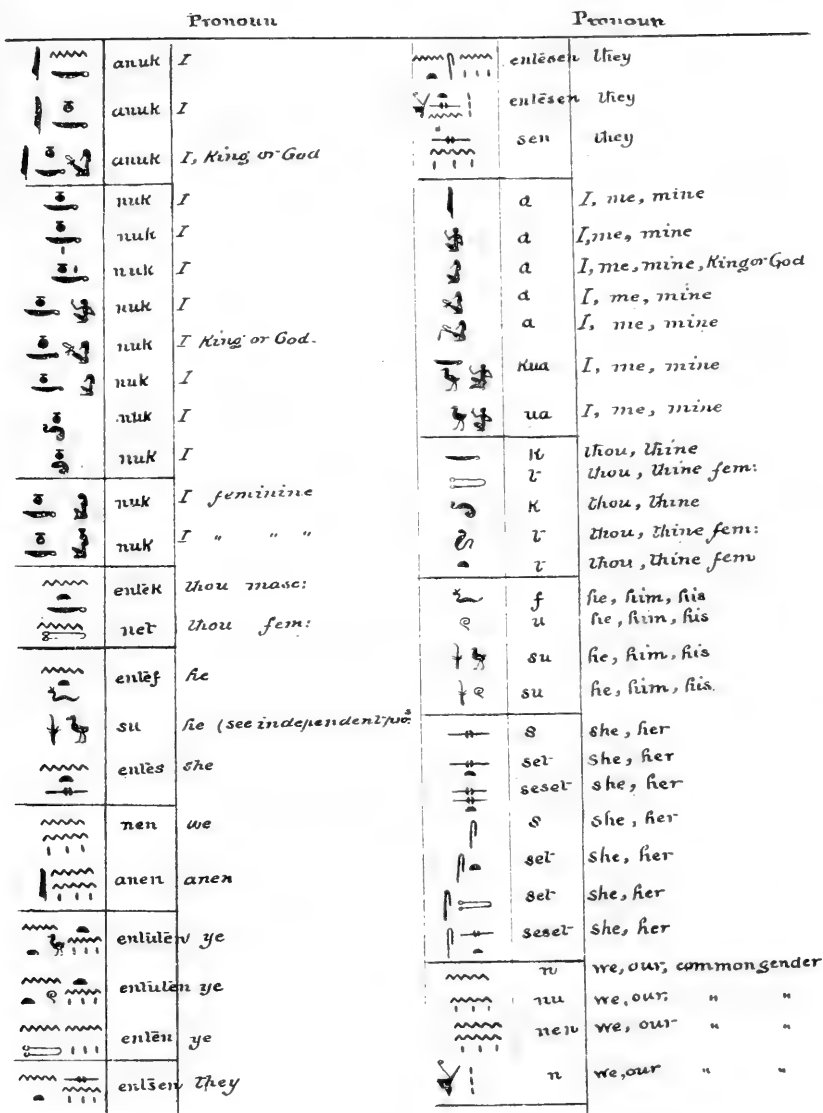 Pronoun
anuk I
anuk I
anuk I, King or God
nuk I
nuk I
nuk I
nuk I
nuk I King or God.
nuk I
nuk I
nuk I
nuk I feminine
nuk I " " "
entek thou masc:
net thou fem:
entef he
su he (see independent
entes she
nen we
anen anen
entutēn ye
entuten ye
entēn ye
entsen They
Pronoun
entēsen they
entēsen they
sen they
a I, me, mine
a I, me, mine
a I, me, mine, King or God
a I, me, mine
a I, me, mine
Kua I, me, mine
ua I, me, mine
K thou, thine
t thou, thine fem:
K thou, thine
t thou, thine fem:
t thou, thine fem
f he, him, his
u he, him, his
su he, him, his
su he, him, his.
s she, her
set she, her
seset she, her
s she, her
set she, her
set she, her
seset she, her
n we, our, common gender
nu we, our, " "
nen we, our " "
n we, our " "